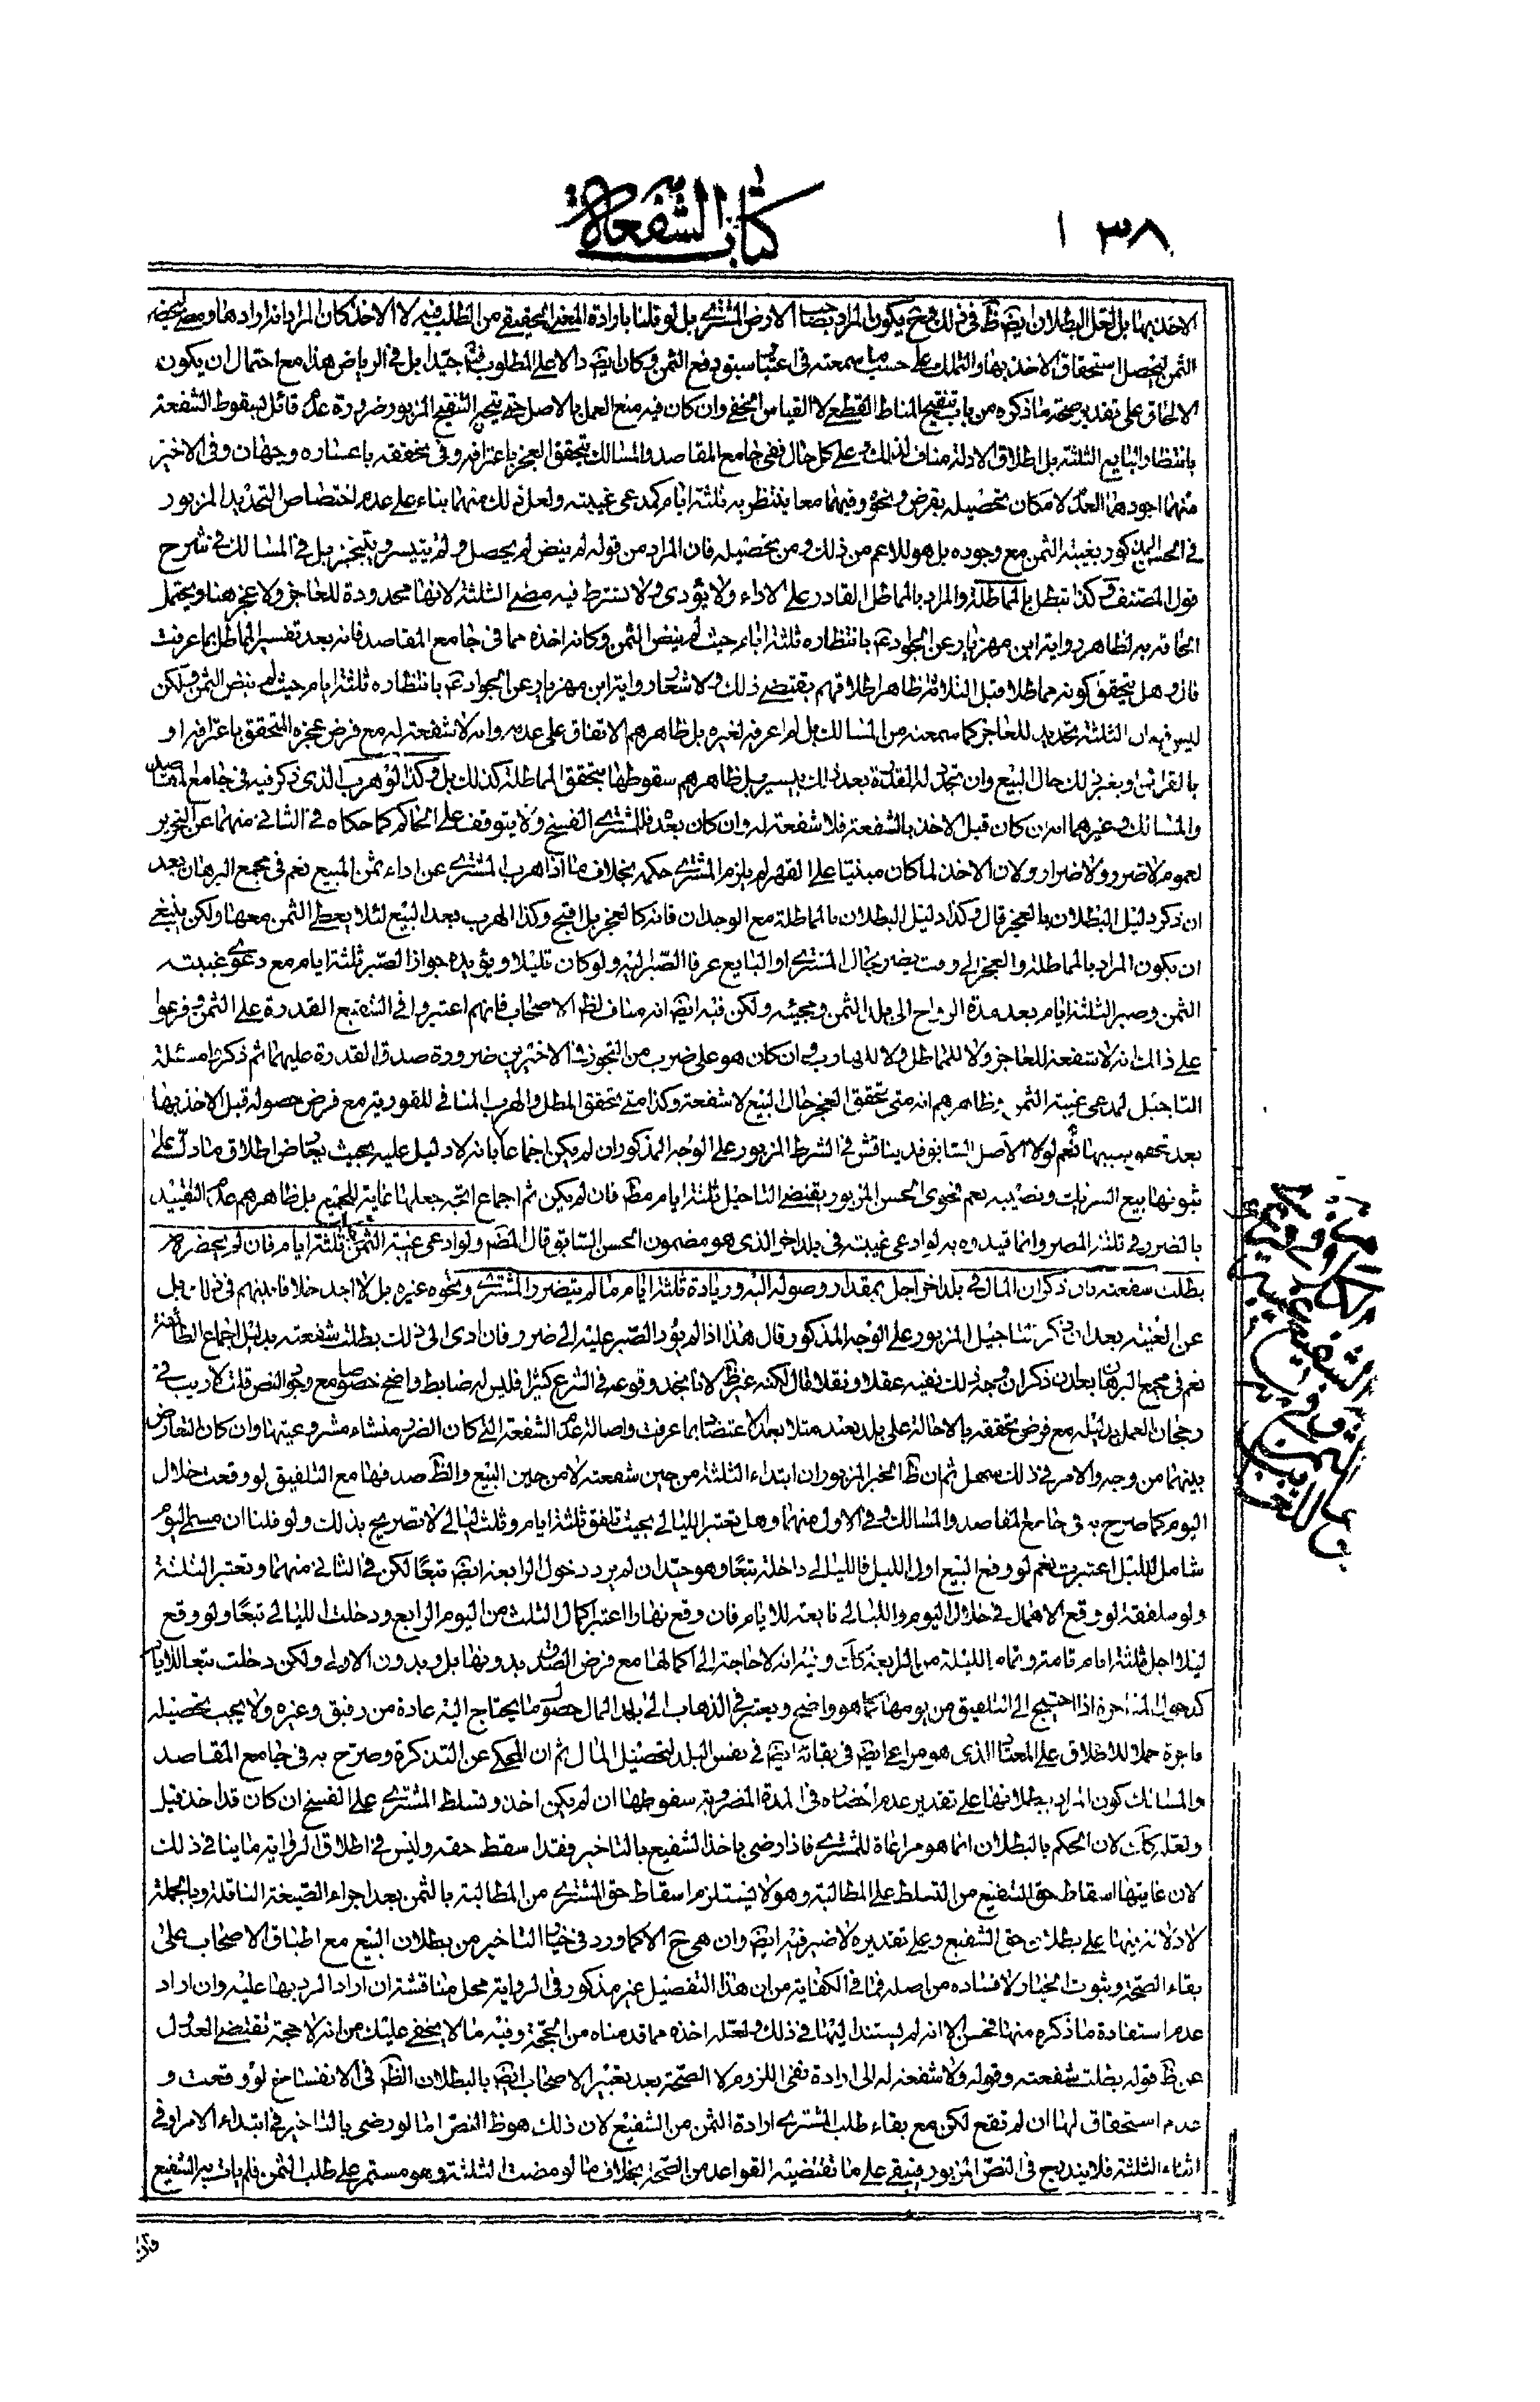 ١٣٨
كتاب الشفعة
الاخذ بها بل لعل البطلان ايضا ظ في ذلك وح يكون المراد بصاحب الارض المشتري بل لو قلنا بارادة المعنى الحقيقي من الطلب فيه لا الاخذ كان المراد انه ارادها ومضى ليحضر
الثمن ليحصل استحقاق الاخذ بها والتملك على حسب ما سمعته في اعتبار سبق دفع الثمن وكان ايضا دالا على المطلوب جيدا بل في الرياض هذا مع احتمال ان يكون
الالحاق على تقدير صحة ما ذكره من باب تنقيح المناط القطعي لا القياس الخفي وان كان فيه منع العمل بالاصل حتى يتجه التنقيح المزبور ضرورة عدم قائل بسقوط الشفعة
بانتظار البايع الثلثة بل اطلاق الادلة مناف لذلك وعلى كل حال ففي جامع المقاصد والمسالك تحقق العجز باعترافه وفي تحققه باعساره وجهان وفي الاخير
منهما اجودهما العدم لامكان تحصيله بقرض ونحوه وفيهما معا ينتظر به ثلثة ايام كمدعي غيبته ولعل ذلك منهما بناء على عدم اختصاص التحديد المزبور
في الحسن المذكور بغيبة الثمن مع وجوده بل هو للاعم من ذلك ومن تحصيله فان المراد من قوله لم ينض لم يحصل ولم يتيسر ويتنجز بل في المسالك في شرح
قول المصنف وكذا تبطل بالمماطلة والمراد بالمماطل القادر على الاداء ولا يؤدي ولا نشترط فيه مضي الثلثة لانها محدودة للعاجز ولا عجز هنا ويحتمل
الحاقه به لظاهر رواية ابن مهزيار عن الجواد ع بانتظاره ثلثة ايام حيث لم ينض الثمن وكانه اخذه مما في جامع المقاصد فانه بعد تفسير المماطل بما عرفت
قال وهل يتحقق كونه مماطلا قبل الثلاثة ظاهر اطلاقهم يقتضي ذلك ولاشعار رواية ابن مهزيار عن الجواد ع بانتظاره ثلثة ايام حيث لم ينض الثمن ولكن
ليس فيهما ان الثلثة تحديد للعاجز كما سمعته من المسالك بل لم اعرفه لغيره بل ظاهرهم الاتفاق على عدمه وانه لا شفعة له مع فرض عجزه المتحقق باعترافه او
بالقرائن او بغير ذلك حال البيع وان تجدد له القدرة بعد ذلك بيسير بل ظاهرهم سقوطها بتحقق المماطلة كذلك بل وكذا لو هرب الذي ذكر فيه في جامع المقاصد
والمسالك وغيرهما انه ان كان قبل الاخذ بالشفعة فلا شفعة له وان كان بعده فللمشتري الفسخ ولا يتوقف على الحاكم كما حكاه في الثاني منهما عن التحرير
لعموم لا ضرر ولا ضرار ولان الاخذ لما كان مبنيا على القهر لم يلزم المشتري حكمه بخلاف ما اذا هرب المشتري عن اداء ثمن المبيع نعم في مجمع البرهان بعد
ان ذكر دليل البطلان بالعجز قال وكذا دليل البطلان بالمماطلة مع الوجدان فانه كالعجز بل اقبح وكذا الهرب بعد البيع لئلا يعطى الثمن معها ولكن ينبغي
ان يكون المراد بالمماطلة والعجز الى وقت يضر بحال المشتري او البايع عرفا الصبر اليه ولو كان قليلا ويؤيده جواز الصبر ثلثة ايام مع دعوى غيبته
الثمن وصبر الثلثة ايام بعد مدة الرواح الى بلد الثمن ومجيئه ولكن فيه ايضا انه مناف لظ الاصحاب فانهم اعتبروا في الشفيع القدرة على الثمن وفرعوا
على ذلك انه لا شفعة للعاجز ولا للمماطل ولا للهارب وان كان هو على ضرب من التجوز في الاخيرين ضرورة صدق القدرة عليهما ثم ذكروا مسئلة
التاجيل لمدعي غيبة الثمن وظاهرهم انه متى تحقق العجز حال البيع لا شفعة وكذا متى تحقق المطل والهرب المنافي للفورية مع فرض حصوله قبل الاخذ بها
بعد تحقق سببها نعم لولا الاصل السابق قد يناقش في الشرط المزبور على الوجه المذكور ان لم يكن اجماعا بانه لا دليل عليه بحيث يعارض اطلاق ما دل على
ثبوتها ببيع الشريك ونصيبه نعم فحوى الحسن المزبور يقتضي التاجيل ثلثة ايام مط فان لم يكن ثم اجماع اتجه جعلها غاية للجميع بل ظاهرهم عدم التقييد
بالضرر في ثلثة المصر وانما قيدوه به لو ادعى غيبته في بلد اخر الذي هو مضمون الحسن السابق قال المصنف ولو ادعى غيبة الثمن اجل ثلثة ايام فان لم يحضره
بطلت شفعته وان ذكر ان المال في بلد اخر اجل بمقدار وصوله اليه وزيادة ثلثة ايام ما لم يتضرر المشتري ونحوه غيره بل لا اجد خلافا بينهم في ذلك بل
عن الغنية بعد ان ذكر التاجيل المزبور على الوجه المذكور قال هذا اذا لم يؤد الصبر عليه الى ضرر فان ادى الى ذلك بطلت شفعته بدليل اجماع الطائفة
نعم في مجمع البرهان بعد ان ذكر ان وجه ذلك نفيه عقلا ونقلا قال لكنه غير ظ لانا نجد وقوعه في الشرع كثيرا فليس له ضابط واضح خصوصا مع وجود النص قلت لا ريب في
رجحان العمل بدليله مع فرض تحققه بالاحالة على بلد بعيد مثلا بعد الاعتضاد بما عرفت واصالة عدم الشفعة التي كان الضرر منشاء مشروعيتها وان كان التعارض
بينهما من وجه والامر في ذلك سهل ثم ان ظ الخبر المزبور ان ابتداء الثلثة من حين شفعته لا من حين البيع والظ صدقها مع التلفيق لو وقعت خلال
اليوم كما صرح به في جامع المقاصد والمسالك وفي الاول منهما وهل تعتبر الليالي بحيث تلفق ثلثة ايام وثلث ليالي لا تصريح بذلك ولو قلنا ان مسمى اليوم
شامل لليل اعتبرت نعم لو وقع البيع اول الليل فالليل داخلة تبعا وهو جيد ان لم يرد دخول الرابعة ايضا تبعا لكن في الثاني منهما وتعتبر الثلثة
ولو ملفقة لو وقع الامهال في خلال اليوم والليالي تابعة للايام فان وقع نهارا اعتبر اكمال الثلث من اليوم الرابع ودخلت الليالي تبعا ولو وقع
ليلا اجل ثلثة ايام تامة وتمام الليلة من الرابعة كك وفيه انه لا حاجة الى اكمالها مع فرض الصدق بدونها بل وبدون الاولى ولكن دخلت تبعا للايام
كدخول المتاخرة اذا احتيج الى التلفيق من يومها كما هو واضح ويعتبر في الذهاب الى بلد المال حصول ما يحتاج اليه عادة من رفيق وغيره ولا يجب تحصيله
باجرة حملا للاطلاق على المعتاد الذي هو مراعى ايضا في بقائه ايضا في نفس البلد لتحصيل المال ثم ان المحكي عن التذكرة وصرح به في جامع المقاصد
والمسالك كون المراد ببطلانها على تقدير عدم احضاره في المدة المضروبة سقوطها ان لم يكن اخذ وتسلط المشتري على الفسخ ان كان قد اخذ قيل
ولعله كك لان الحكم بالبطلان انما هو مراعاة للمشتري فاذا رضي باخذ الشفيع بالتاخير فقد اسقط حقه وليس في اطلاق الرواية ما ينافي ذلك
لان غايتها اسقاط حق الشفيع من التسلط على المطالبة وهو لا يستلزم اسقاط حق المشتري من المطالبة بالثمن بعد اجراء الصيغة الناقلة وبالجملة
لا دلالة فيها على بطلان حق الشفيع وعلى تقديره لا ضير فيه ايضا وان هي ح الا كما ورد في خيار التاخير من بطلان البيع مع اطباق الاصحاب على
بقاء الصحة وثبوت الخيار لا فساده من اصله فما في الكفاية من ان هذا التفصيل غير مذكور في الرواية محل مناقشة ان اراد الرد بها عليه وان اراد
عدم استفادة ما ذكره منها فحسن الا انه لم يستند اليها في ذلك ولعله اخذه مما قدمناه من الحجة وفيه ما لا يخفى عليك من انه لا حجة تقتضي العدول
عن ظ قوله بطلت شفعته وقوله ولا شفعة له الى ارادة نفي اللزوم لا الصحة بعد تعبير الاصحاب ايضا بالبطلان الظ في الانفساخ لو وقعت و
عدم استحقاق لها ان لم تقع لكن مع بقاء طلب المشتري ارادة الثمن من الشفيع لان ذلك هو ظ النص اما لو رضي بالتاخير في ابتداء الامر او في
اثناء الثلثة فلا يندرج في النص المزبور فيبقى على ما تقتضيه القواعد من الصحة بخلاف ما لو مضت الثلثة وهو مستمر على طلب الثمن فلم يات به الشفيع